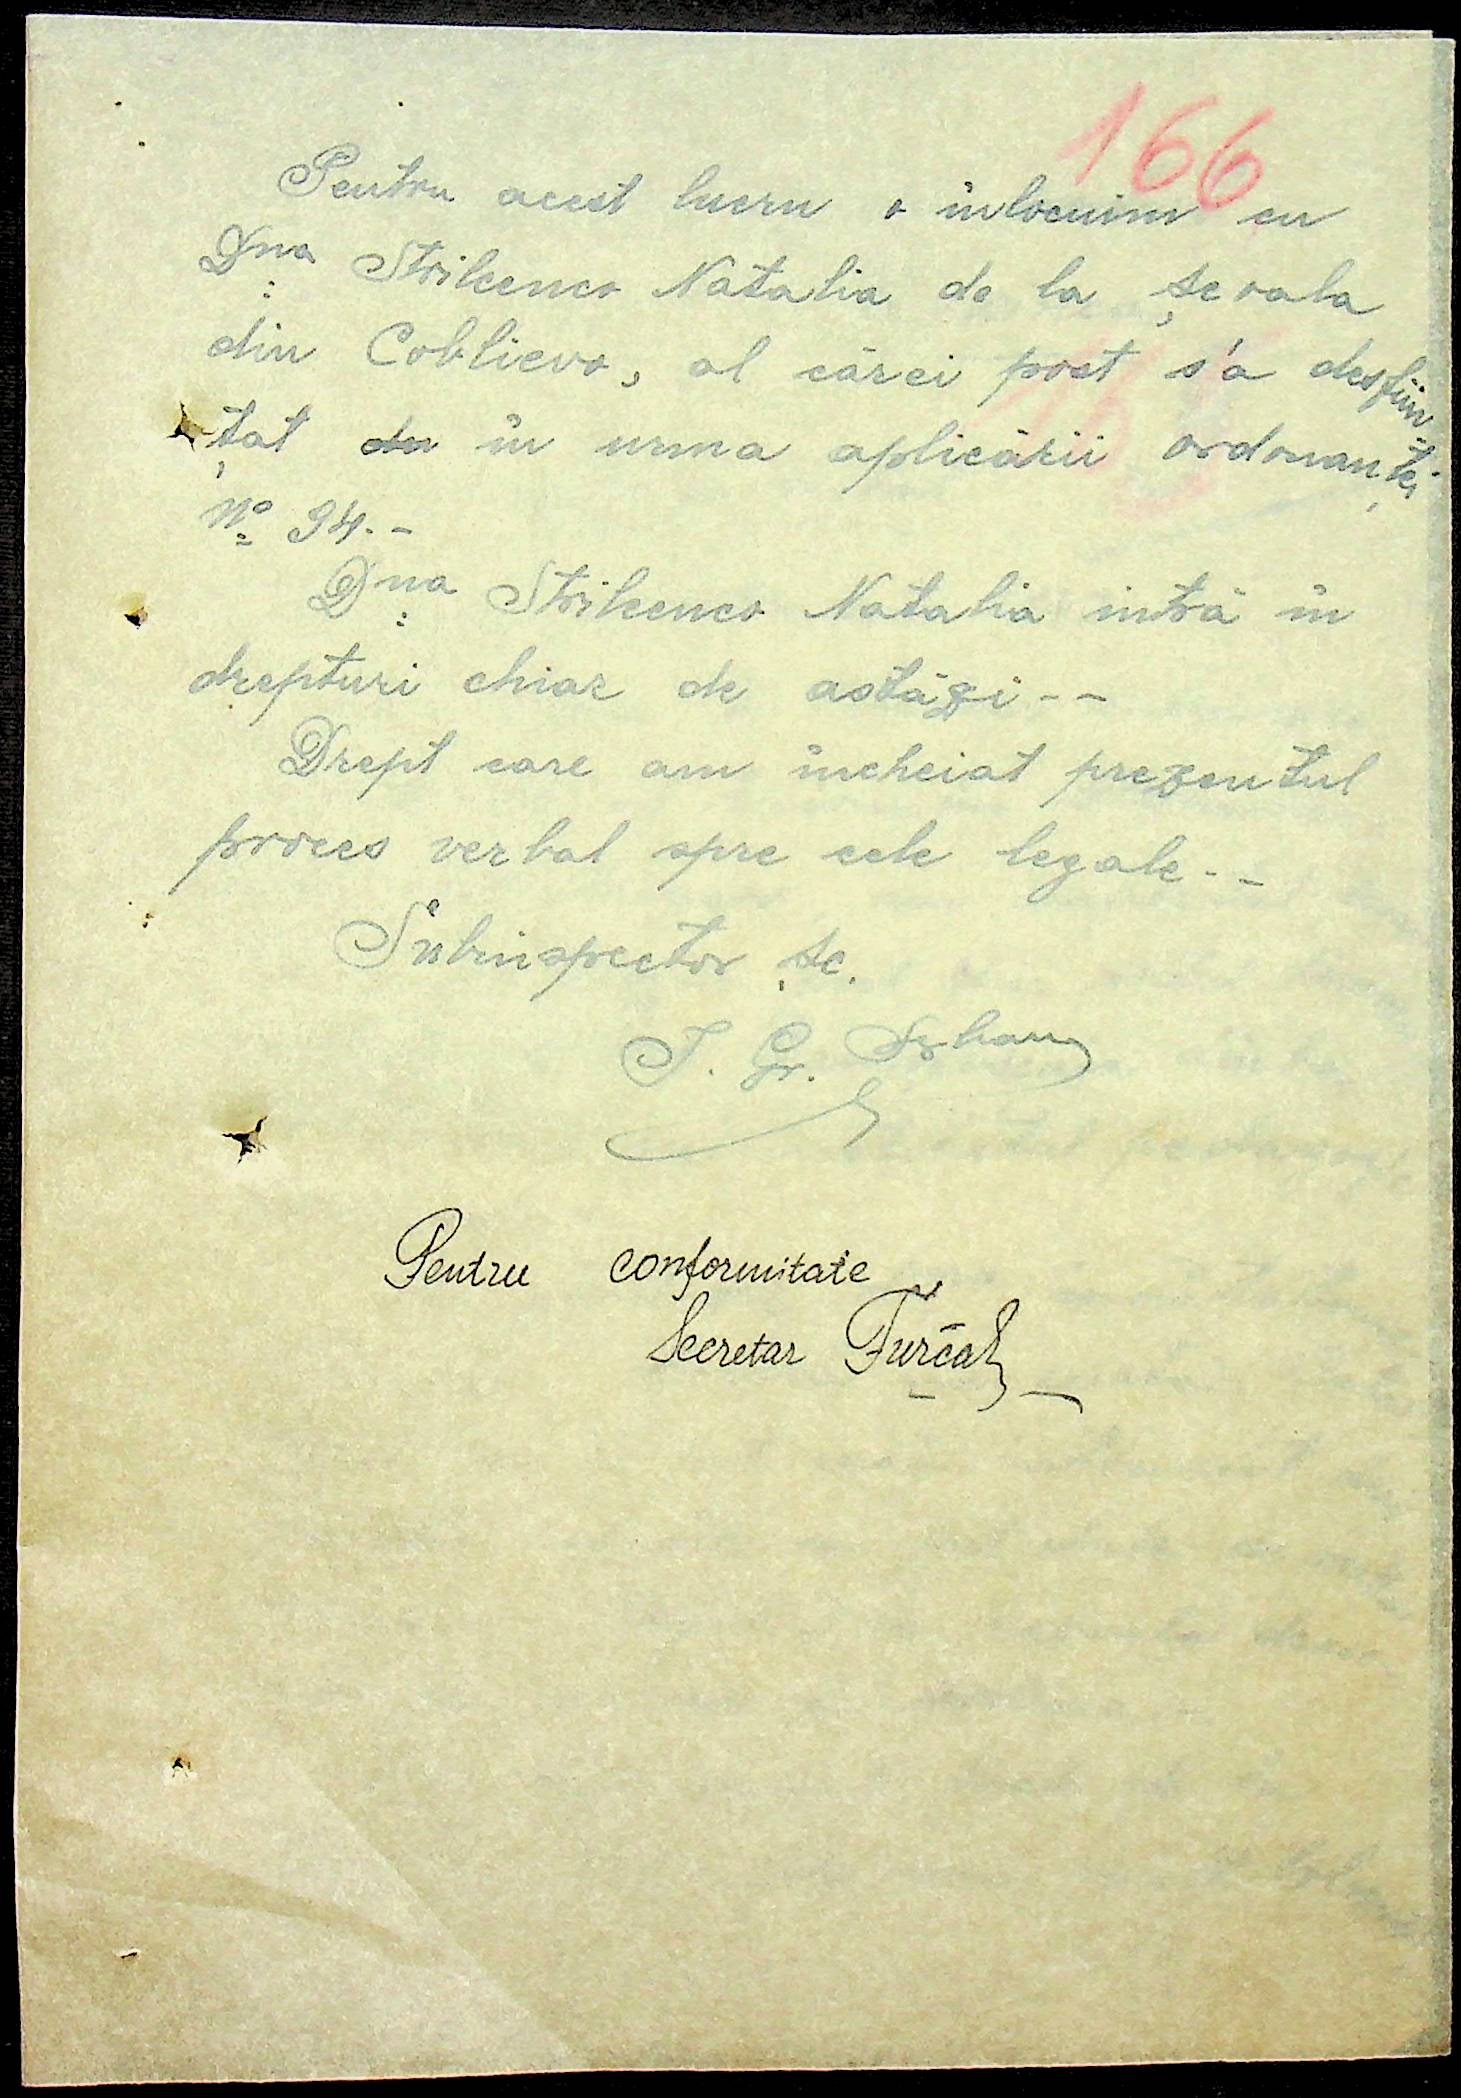 166
Pentru acest lucru o înlocuim cu
Dna Strilcenco Natalia de la școala
din Coblievo, al cărei post s'a desfiin
țat în urma aplicării ordonanței
No 94.-
Dna Strilcenco Natalia intră în
drepturi chiar de astăzi--
Drept care am încheiat prezentul
proces verbal spre cele legale.--
Subinspector șc.
I. Gr.
Pentru conformitate
Secretar